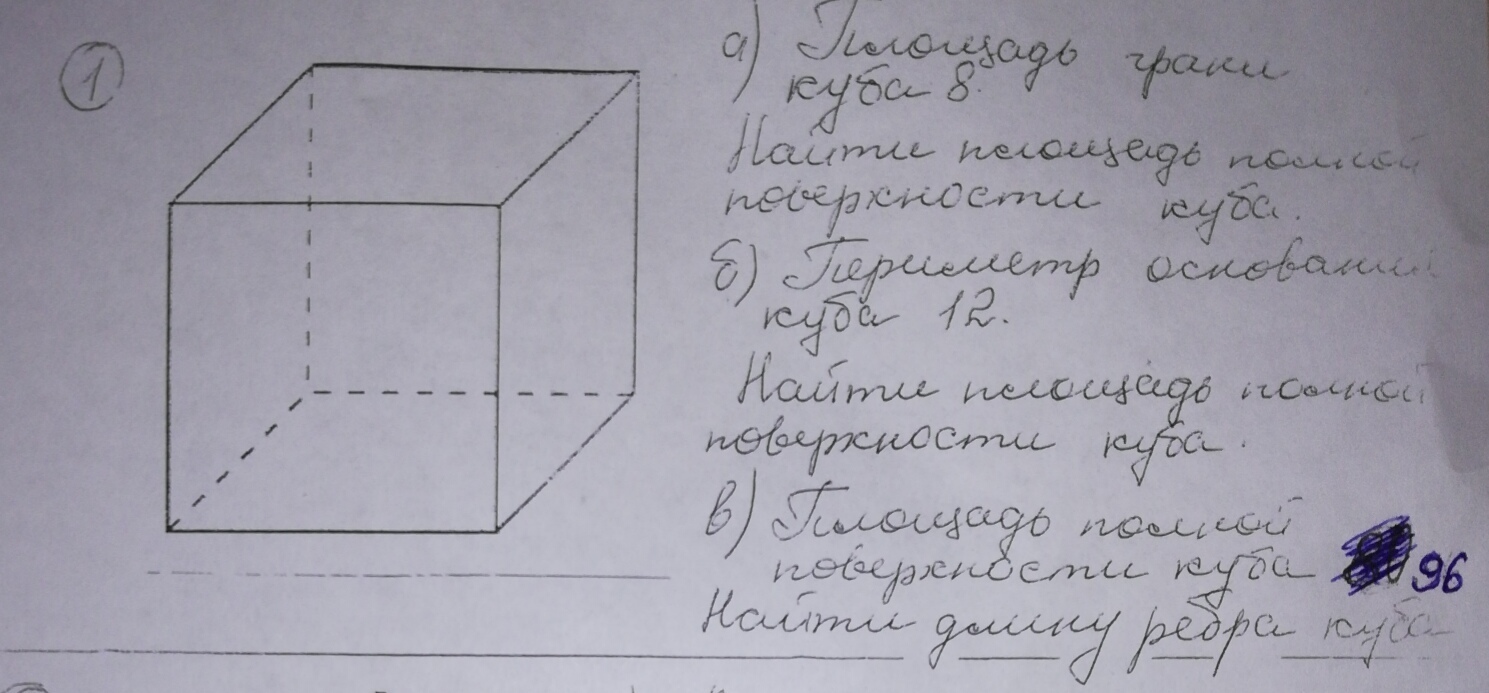 1
а) Площадь грани
куба 8.
Найти площадь полной
поверхности куба.
б) Периметр основания
куба 12.
Найти площадь полной
поверхности куба.
в) Площадь полной
поверхности куба 96
Найти длину ребра куба